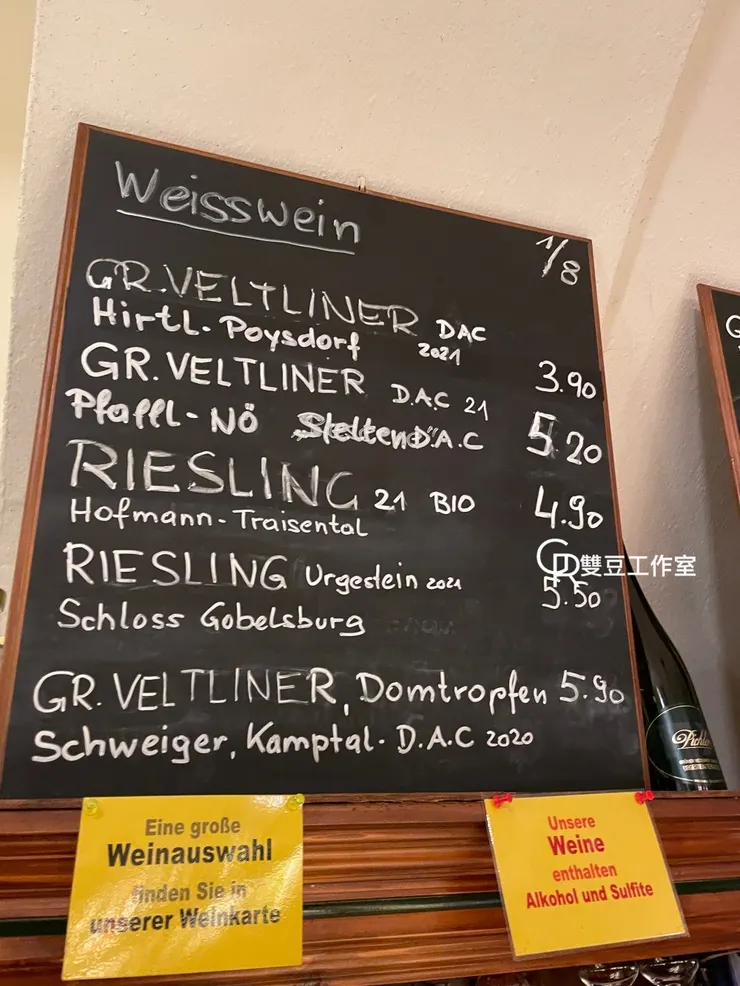 Weisswein
1/8
GR. VELTLINER DAC
Hirtl - Poysdorf 2021 3.90
GR. VELTLINER D.A.C 21
Pfaffl - NÖ D.A.C 5.20
RIESLING 21 BIO 4.90
Hofmann - Traisental
RIESLING Urgestein 2021 5.50
Schloss Gobelsburg
GR. VELTLINER, Domtropfen 5.90
Schweiger, Kamptal - D.A.C 2020
雙豆工作室
Eine große
Weinauswahl
finden Sie in
unserer Weinkarte
Unsere
Weine
enthalten
Alkohol und Sulfite